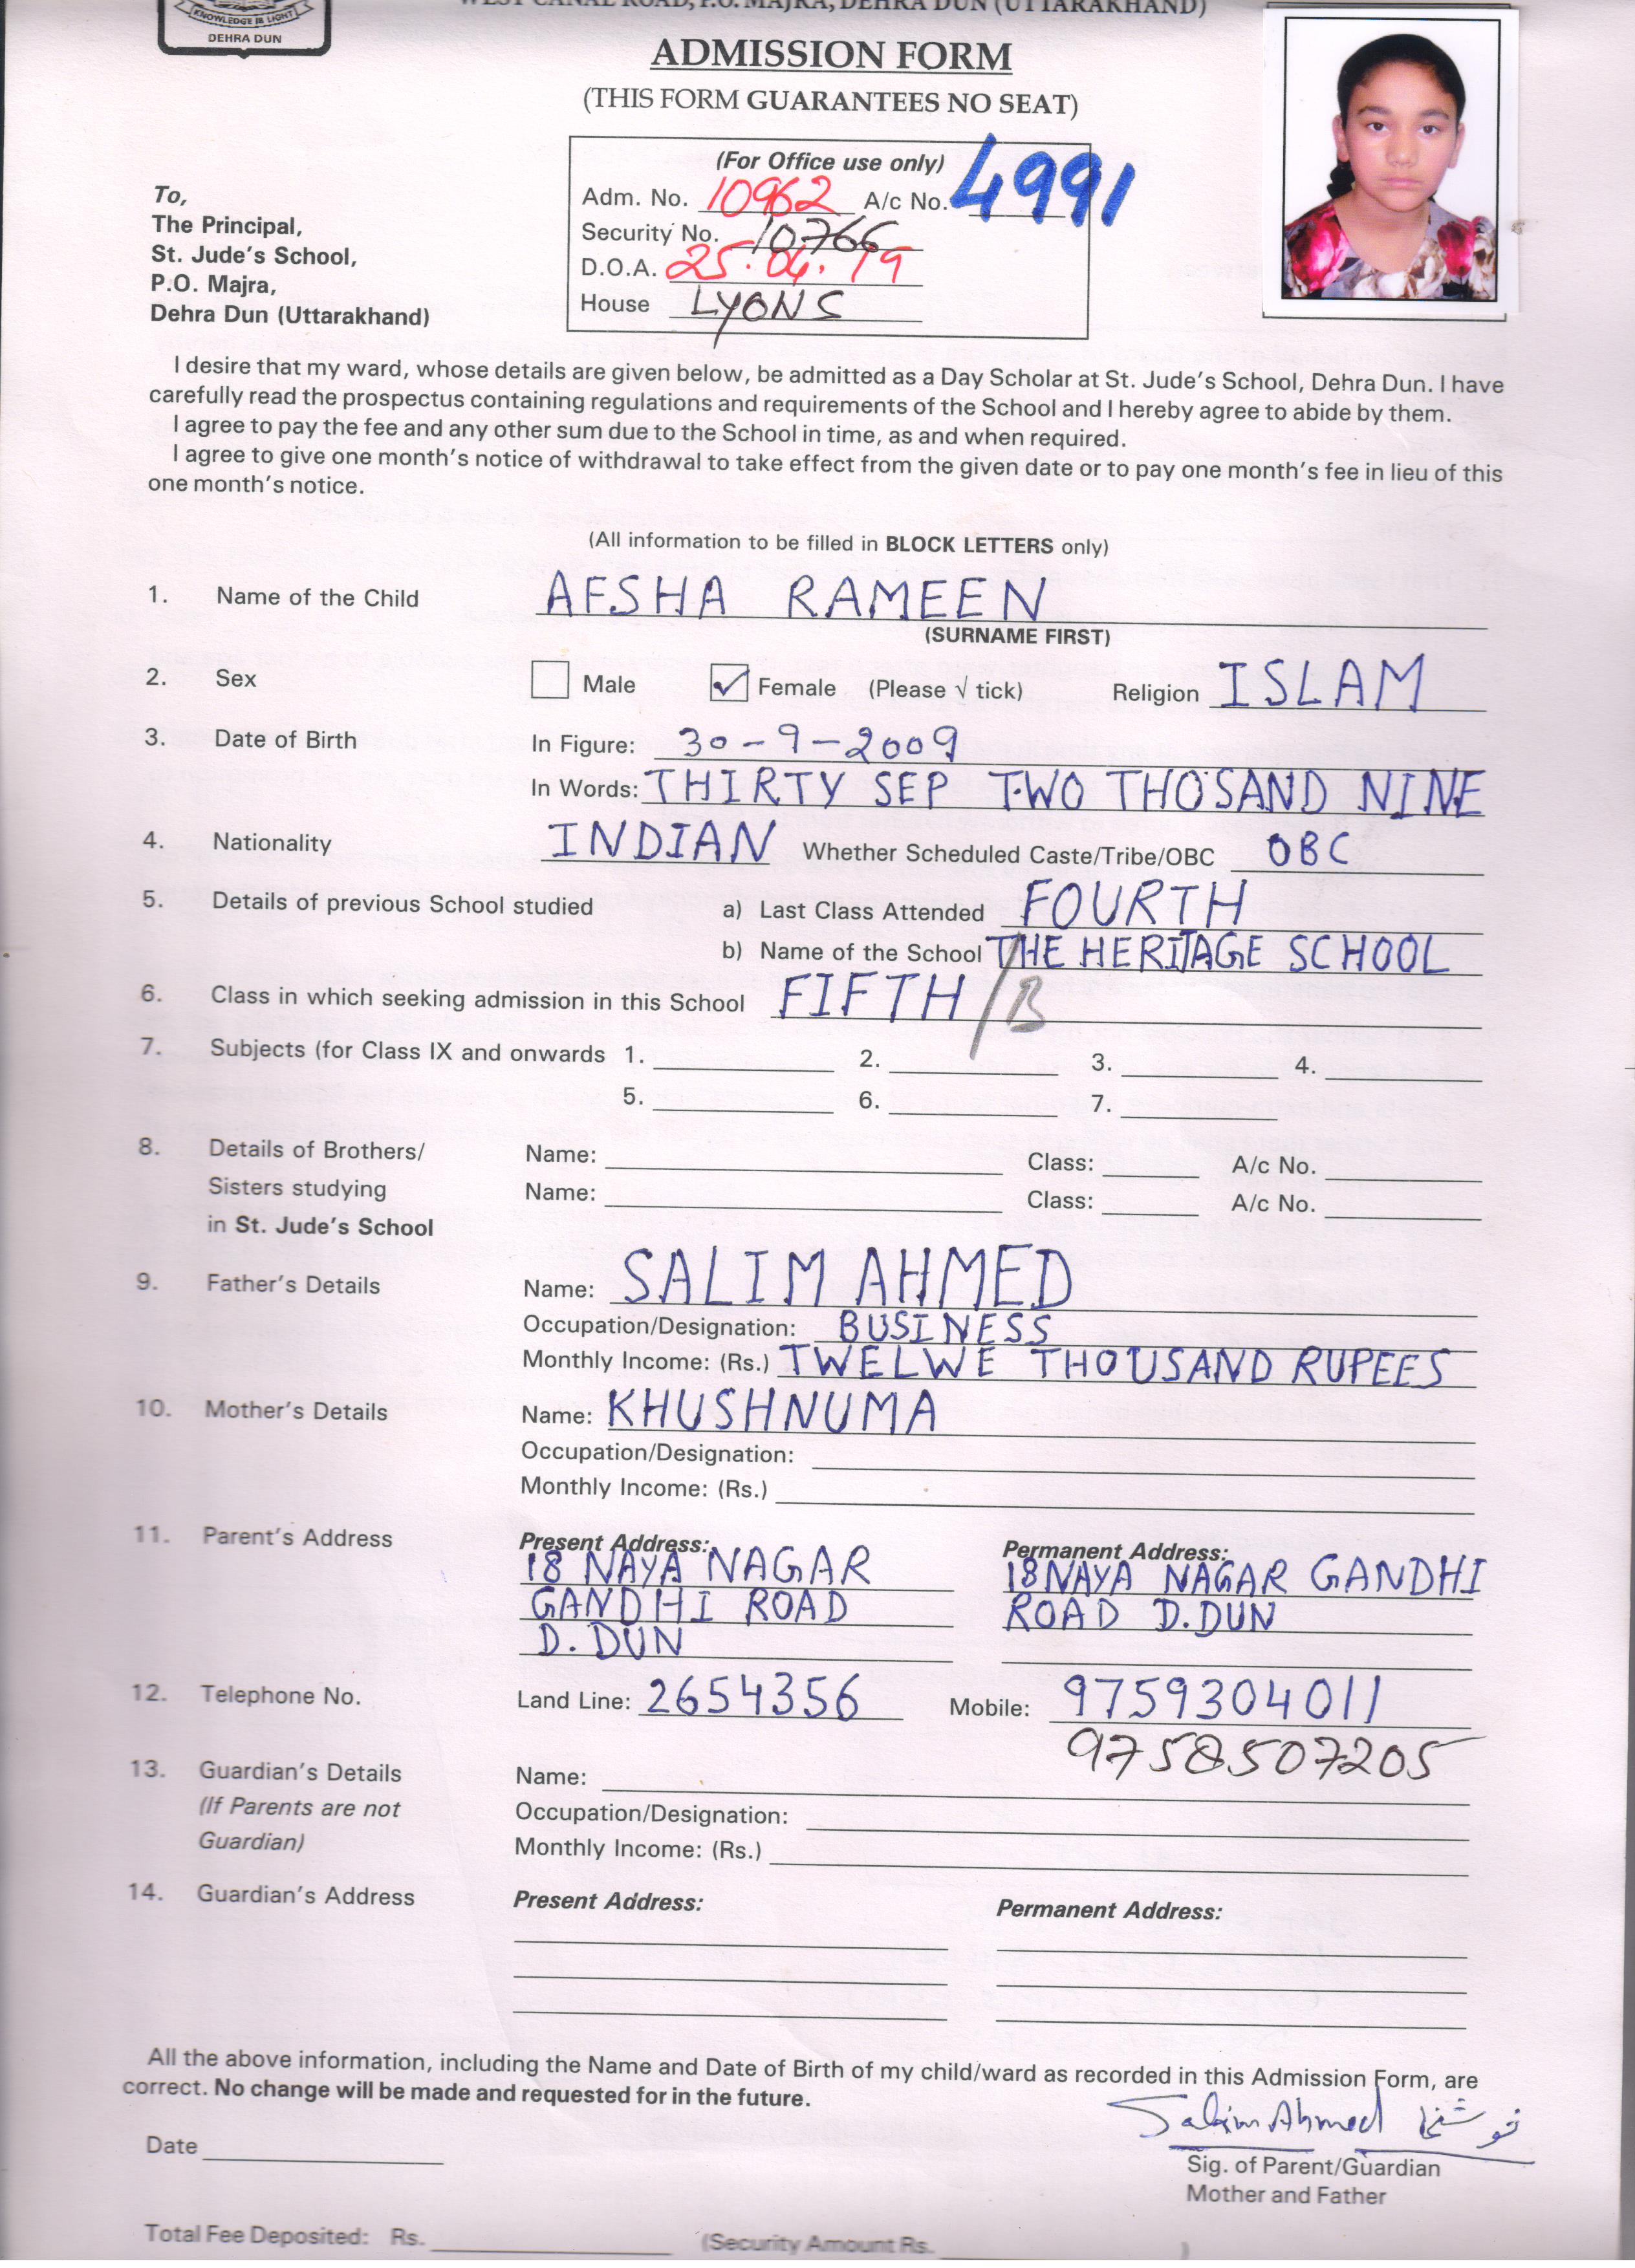 KNOWLEDGE IS LIGHT
DEHRA DUN
WEST CANAL ROAD, P.O. MAJRA, DEHRA DUN (UTTARAKHAND)
ADMISSION FORM
(THIS FORM GUARANTEES NO SEAT)
(For Office use only)
Adm. No. 10962 A/c No. 4991
Security No. 10766
D.O.A. 25.04.19
House LYONS
To,
The Principal,
St. Jude's School,
P.O. Majra,
Dehra Dun (Uttarakhand)
I desire that my ward, whose details are given below, be admitted as a Day Scholar at St. Jude's School, Dehra Dun. I have
carefully read the prospectus containing regulations and requirements of the School and I hereby agree to abide by them.
I agree to pay the fee and any other sum due to the School in time, as and when required.
I agree to give one month's notice of withdrawal to take effect from the given date or to pay one month's fee in lieu of this
one month's notice.
(All information to be filled in BLOCK LETTERS only)
1. Name of the Child AFSHA RAMEEN
(SURNAME FIRST)
2. Sex Male Female (Please √ tick) Religion ISLAM
3. Date of Birth In Figure: 30-9-2009
In Words: THIRTY SEP TWO THOSAND NINE
4. Nationality INDIAN Whether Scheduled Caste/Tribe/OBC OBC
5. Details of previous School studied a) Last Class Attended FOURTH
b) Name of the School THE HERITAGE SCHOOL
6. Class in which seeking admission in this School FIFTH/B
7. Subjects (for Class IX and onwards 1. 2. 3. 4.
5. 6. 7.
8. Details of Brothers/ Name: Class: A/c No.
Sisters studying Name: Class: A/c No.
in St. Jude's School
9. Father's Details Name: SALIM AHMED
Occupation/Designation: BUSINESS
Monthly Income: (Rs.) TWELWE THOUSAND RUPEES
10. Mother's Details Name: KHUSHNUMA
Occupation/Designation:
Monthly Income: (Rs.)
11. Parent's Address Present Address: Permanent Address:
18 NAYA NAGAR 18 NAYA NAGAR GANDHI
GANDHI ROAD ROAD D.DUN
D.DUN
12. Telephone No. Land Line: 2654356 Mobile: 9759304011
9758507205
13. Guardian's Details Name:
(If Parents are not Occupation/Designation:
Guardian) Monthly Income: (Rs.)
14. Guardian's Address Present Address: Permanent Address:
All the above information, including the Name and Date of Birth of my child/ward as recorded in this Admission Form, are
correct. No change will be made and requested for in the future.
Salim Ahmed خوشنما
Date
Sig. of Parent/Guardian
Mother and Father
Total Fee Deposited: Rs. (Security Amount Rs. )